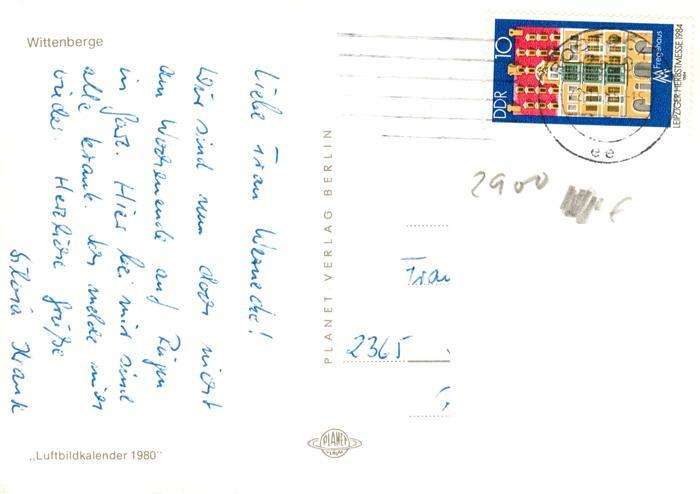 Wittenberge
Liebe Frau Warnecke!
Wir sind nun doch nicht
am Wochenende auf Rügen
in Gart. Hier bei mir sind
alle krank. Ich melde mich
wieder. Herzliche Grüße
Krank
„Luftbildkalender 1980"
PLANET VERLAG BERLIN
PLANET
DDR 10
Fregehaus
MM
LEIPZIGER HERBSTMESSE 1984
ee
2900
€
Frau
2365